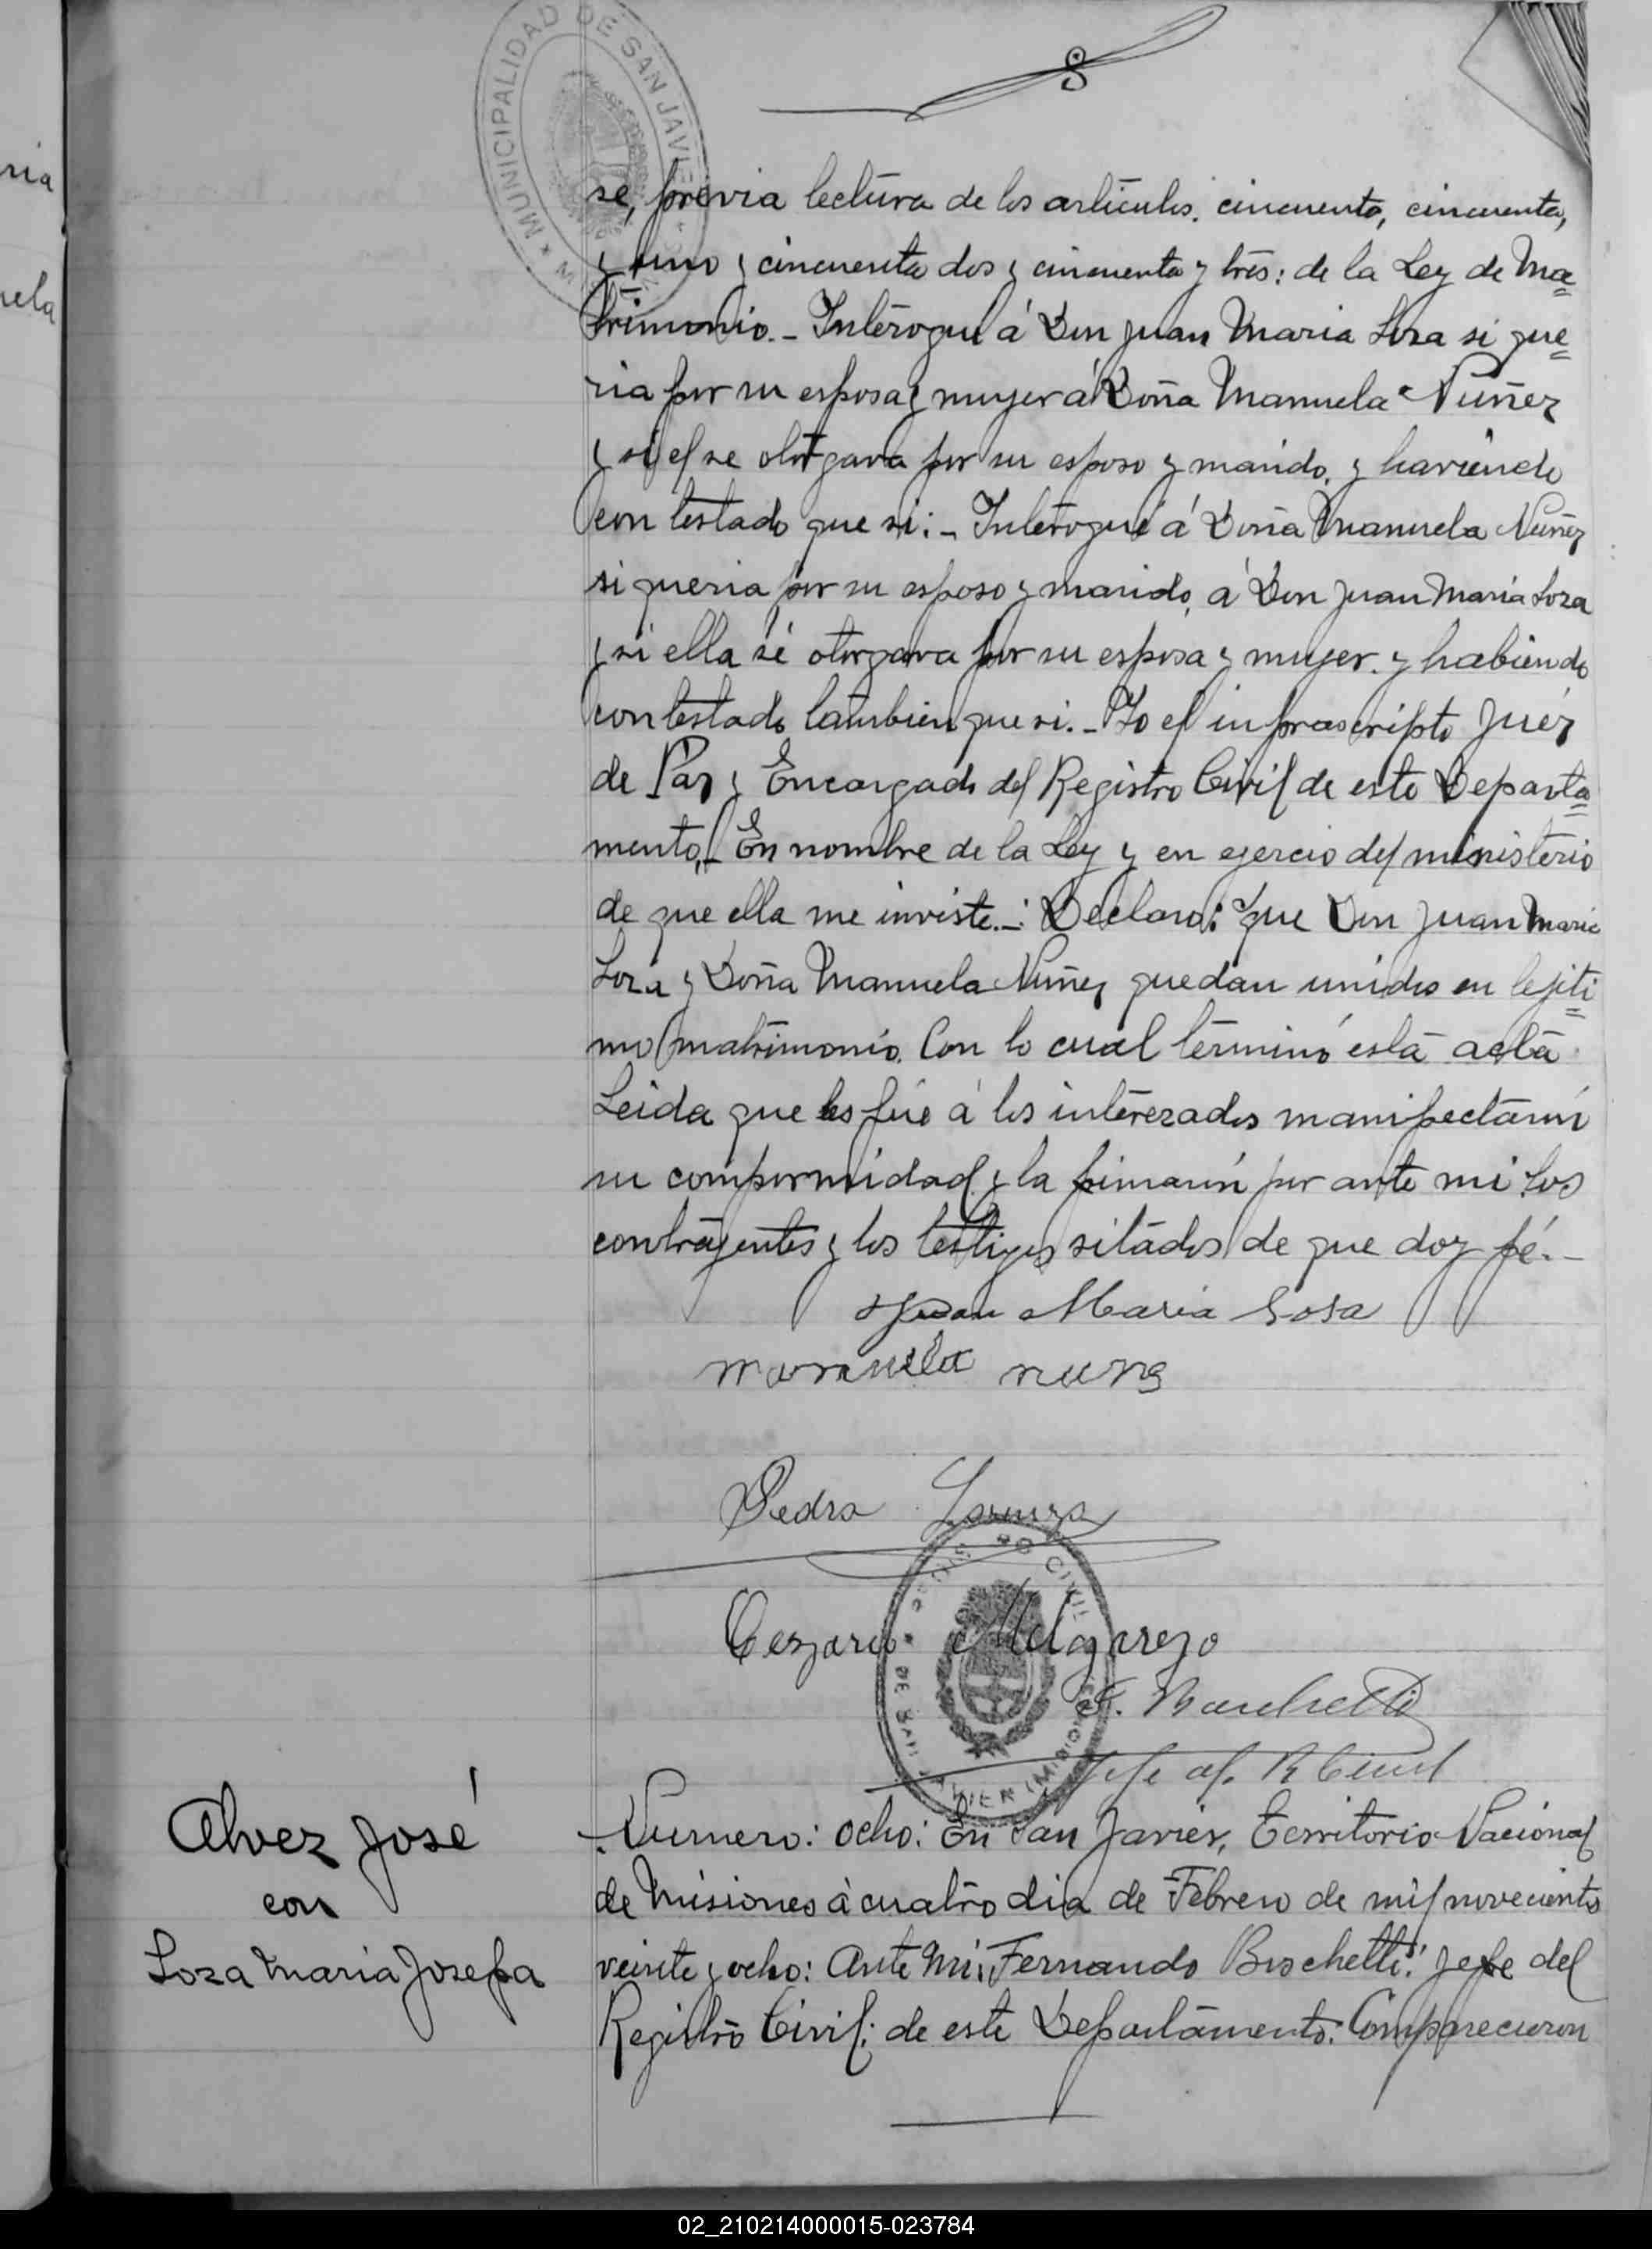 MUNICIPALIDAD DE SAN JAVIER
8
ria
uela
se, previa lectura de los articulos. cincuenta, cincuenta,
y uno y cincuenta dos y cincuenta y tres: de la Ley de Ma=
trimonio.- Interogué á Don Juan Maria Loza si que=
ria por su esposa y muger á Doña Manuela Nuñez
y si el se otorgava por su esposo y marido, y haviendo
contestado que si:- Interogué á Doña Manuela Nuñez
si queria por su esposo y marido, á Don Juan Maria Loza
y si ella se otorgava por su esposa y muger. y habiendo
contestado tambien que si.- Yo el infrascripto Juéz
de Páz y Encargado del Registro Civil de este Departa=
mento,- En nombre de la Ley y en ejercio del ministerio
de que ella me inviste.-: Declaro: que Don Juan Maria
Loza y Doña Manuela Nuñez quedan unidos en lejiti=
mo matrimonio. Con lo cual terminó está acta
Leida que les fué á los interezados manifectarón
su conformidad y la fimarón por ante mi Los
contrayentes y los testigos sitádos de que doy fé.-
Juan Maria Sosa
manuela nunes
Pedro
REGISTRO CIVIL DE SAN JAVIER (MISIONES)
Cezario Melgarejo
F. Bruschetti
Jefe of. R Civil
Alvez José
con
Loza Maria Josefa
Numero: ocho: En San Javier, Territorio Nacional
de Misiones à cuatro dia de Febrero de mil novecientos
veinte y ocho: Ante Mi: Fernando Bschetti: Jefe del
Registro Civil: de este Departamento: Comparecieron
02_210214000015-023784